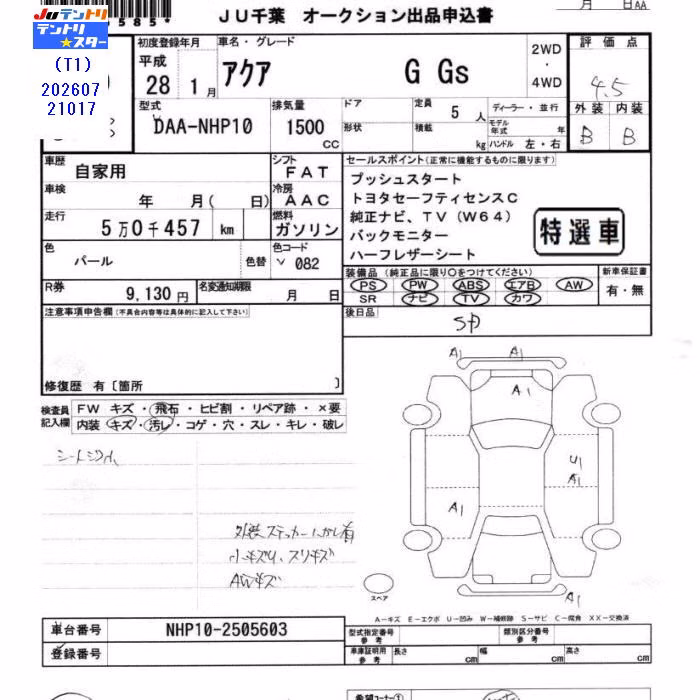 JU千葉 オークション出品申込書
月 日 AA
JUテントリ
テントリ☆スター
585*
(T1)
202607
21017
初度登録年月
平成
28 1月
車名・グレード
アクア G Gs
2WD
・
4WD
評価点
4.5
外装 内装
B B
型式
DAA-NHP10
排気量
1500
CC
ドア
形状
定員 5 人
積載 kg
ディーラー・並行
モデル年式 年
ハンドル 左・右
車歴
自家用
シフト
FAT
車検
年 月( 日)
冷房
AAC
走行
5万0千457 km
燃料
ガソリン
色
パール
色替
色コード
082
R券
9,130円
名変通知期限
月 日
セールスポイント(正常に機能するものに限ります)
プッシュスタート
トヨタセーフティセンスC
純正ナビ、TV(W64)
バックモニター
ハーフレザーシート
特選車
装備品(純正品に限り○をつけてください)
PS PW ABS エアB AW
SR ナビ TV カワ
新車保証書
有・無
後日品
SD
注意事項申告欄(不具合内容等は具体的に記入して下さい)
修復歴 有〔箇所 〕
検査員
記入欄
FW キズ・飛石・ヒビ割・リペア跡・×要
内装 キズ・汚レ・コゲ・穴・スレ・キレ・破レ
外装ステッカーはがし有
小キズ、スリキズ
AWキズ
A1
A1
A1
U1
A1
A1
A1
スペア
A-キズ E-エクボ U-凹み W-補修跡 S-サビ C-腐食 XX-交換済
車台番号 NHP10-2505603
登録番号
型式指定番号
参考
類別区分番号
参考
車庫証明用
参考
長さ cm
幅 cm
高さ cm
希望コーナー①